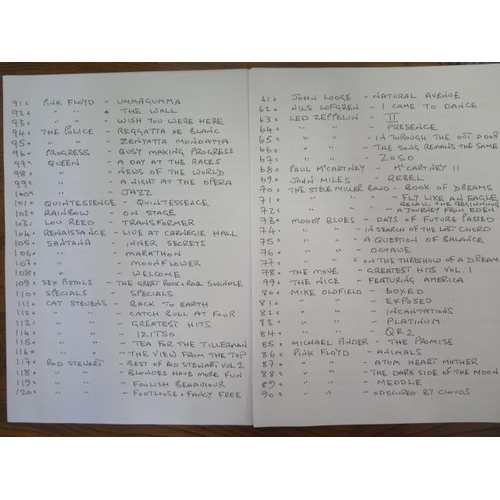 91: PINK FLOYD - UMMAGUMMA
92: " " - THE WALL
93: " " - WISH YOU WERE HERE
94: THE POLICE - REGGATTA DE BLANC
95: " " - ZENYATTA MONDATTA
96: PROGRESS - BUSY MAKING PROGRESS
97: QUEEN - A DAY AT THE RACES
98: " - NEWS OF THE WORLD
99: " - A NIGHT AT THE OPERA
100: " - JAZZ
101: QUINTESSENCE - QUINTESSENCE
102: RAINBOW - ON STAGE
103: LOU REED - TRANSFORMER
104: RENAISSANCE - LIVE AT CARNEGIE HALL
105: SANTANA - INNER SECRETS
106: " - MARATHON
107: " - MOONFLOWER
108: " - WELCOME
109: SEX PISTOLS - THE GREAT ROCK & ROLL SWINDLE
110: SPECIALS - SPECIALS
111: CAT STEVENS - BACK TO EARTH
112: " " - CATCH BULL AT FOUR
113: " " - GREATEST HITS
114: " " - IZITSO
115: " " - TEA FOR THE TILLERMAN
116: " " - THE VIEW FROM THE TOP
117: ROD STEWART - BEST OF ROD STEWART VOL 2
118: " " - BLONDES HAVE MORE FUN
119: " " - FOOLISH BEHAVIOUR
120: " " - FOOTLOOSE & FANCY FREE
61: JOHN LODGE - NATURAL AVENUE
62: NILS LOFGREN - I CAME TO DANCE
63: LED ZEPPELIN - II
64: " " - PRESENCE
65: " " - IN THROUGH THE OUT DOOR
66: " " - THE SONG REMAINS THE SAME
67: " " - ZOSO
68: PAUL McCARTNEY - McCARTNEY II
69: JOHN MILES - REBEL
70: THE STEVE MILLER BAND - BOOK OF DREAMS
71: " " " - FLY LIKE AN EAGLE
72: " " " - RECALL THE BEGINNING - A JOURNEY FROM EDEN
73: MOODY BLUES - DAYS OF FUTURE PASSED
74: " " - IN SEARCH OF THE LOST CHORD
75: " " - A QUESTION OF BALANCE
76: " " - OCTAVE
77: " " - ON THE THRESHOLD OF A DREAM
78: THE MOVE - GREATEST HITS VOL. 1
79: THE NICE - FEATURING AMERICA
80: MIKE OLDFIELD - BOXED
81: " " - EXPOSED
82: " " - INCANTATIONS
83: " " - PLATINUM
84: " " - QE2
85: MICHAEL PINDER - THE PROMISE
86: PINK FLOYD - ANIMALS
87: " " - ATOM HEART MOTHER
88: " " - THE DARK SIDE OF THE MOON
89: " " - MEDDLE
90: " " - OBSCURED BY CLOUDS